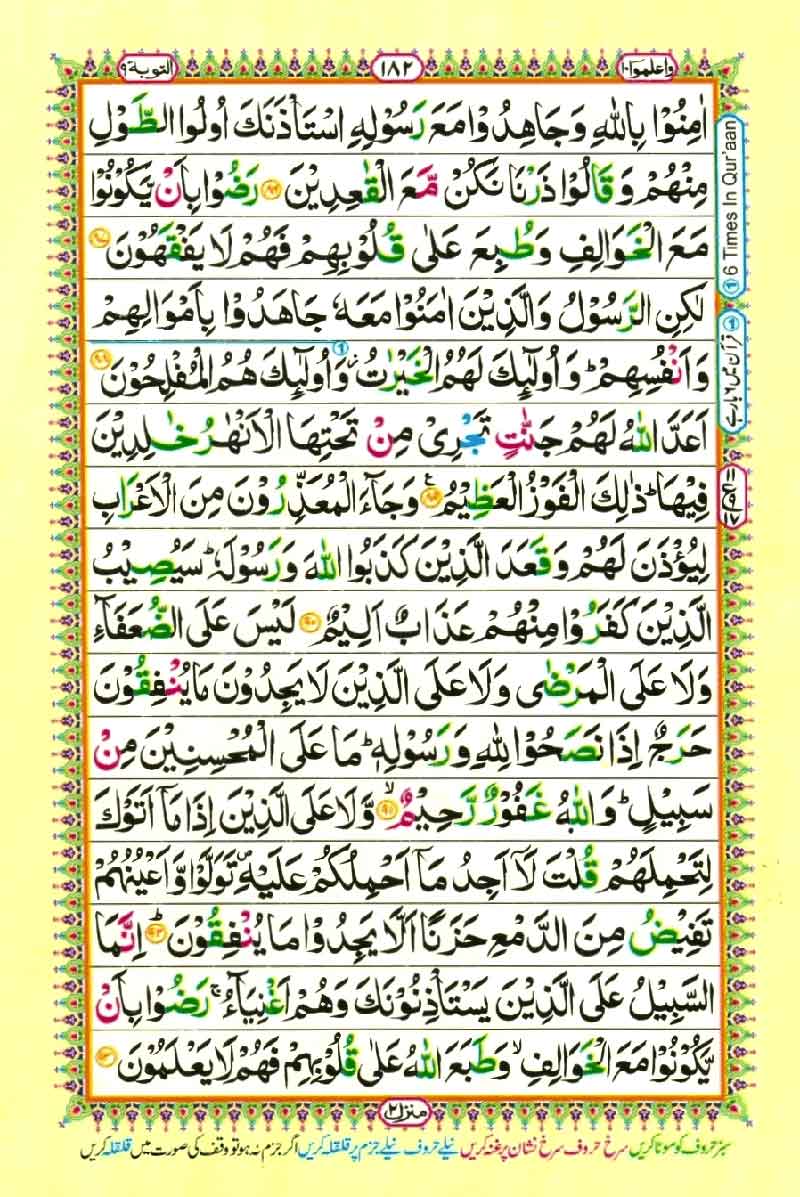 التوبة ٩
١٨٢
واعلموا ١٠
اٰمِنُوْا بِاللّٰهِ وَجَاهِدُوْا مَعَ رَسُوْلِهِ اسْتَاْذَنَكَ اُولُوا الطَّوْلِ
مِنْهُمْ وَقَالُوْا ذَرْنَا نَكُنْ مَّعَ الْقٰعِدِيْنَ ﴿۸۶﴾ رَضُوْا بِاَنْ يَّكُوْنُوْا
مَعَ الْخَوَالِفِ وَطُبِعَ عَلٰى قُلُوْبِهِمْ فَهُمْ لَا يَفْقَهُوْنَ ﴿۸۷﴾
لٰكِنِ الرَّسُوْلُ وَالَّذِيْنَ اٰمَنُوْا مَعَهٗ جَاهَدُوْا بِاَمْوَالِهِمْ
وَاَنْفُسِهِمْ ؕ وَاُولٰٓئِكَ لَهُمُ الْخَيْرٰتُ ؗ وَاُولٰٓئِكَ هُمُ الْمُفْلِحُوْنَ ﴿۸۸﴾
اَعَدَّ اللّٰهُ لَهُمْ جَنّٰتٍ تَجْرِىْ مِنْ تَحْتِهَا الْاَنْهٰرُ خٰلِدِيْنَ
فِيْهَا ؕ ذٰلِكَ الْفَوْزُ الْعَظِيْمُ ﴿۸۹﴾ وَجَآءَ الْمُعَذِّرُوْنَ مِنَ الْاَعْرَابِ
لِيُؤْذَنَ لَهُمْ وَقَعَدَ الَّذِيْنَ كَذَبُوا اللّٰهَ وَرَسُوْلَهٗ ؕ سَيُصِيْبُ
الَّذِيْنَ كَفَرُوْا مِنْهُمْ عَذَابٌ اَلِيْمٌ ﴿۹۰﴾ لَيْسَ عَلَى الضُّعَفَآءِ
وَلَا عَلَى الْمَرْضٰى وَلَا عَلَى الَّذِيْنَ لَا يَجِدُوْنَ مَا يُنْفِقُوْنَ
حَرَجٌ اِذَا نَصَحُوْا لِلّٰهِ وَرَسُوْلِهٖ ؕ مَا عَلَى الْمُحْسِنِيْنَ مِنْ
سَبِيْلٍ ؕ وَاللّٰهُ غَفُوْرٌ رَّحِيْمٌ ﴿۹۱﴾ ۙ وَّلَا عَلَى الَّذِيْنَ اِذَا مَآ اَتَوْكَ
لِتَحْمِلَهُمْ قُلْتَ لَآ اَجِدُ مَآ اَحْمِلُكُمْ عَلَيْهِ ۪ تَوَلَّوْا وَّاَعْيُنُهُمْ
تَفِيْضُ مِنَ الدَّمْعِ حَزَنًا اَلَّا يَجِدُوْا مَا يُنْفِقُوْنَ ﴿۹۲﴾ ؕ اِنَّمَا
السَّبِيْلُ عَلَى الَّذِيْنَ يَسْتَاْذِنُوْنَكَ وَهُمْ اَغْنِيَآءُ ۚ رَضُوْا بِاَنْ
يَّكُوْنُوْا مَعَ الْخَوَالِفِ ۙ وَطَبَعَ اللّٰهُ عَلٰى قُلُوْبِهِمْ فَهُمْ لَا يَعْلَمُوْنَ ﴿۹۳﴾
① 6 Times In Qur'aan
① قرآن میں ۶ بار ہے
منزل ٢
سبز حروف کو موٹا کریں سرخ حروف سرخ نشان پر غنہ کریں نیلے حروف نیلے جزم پر قلقلہ کریں اگر جزم نہ ہو تو وقف کی صورت میں قلقلہ کریں